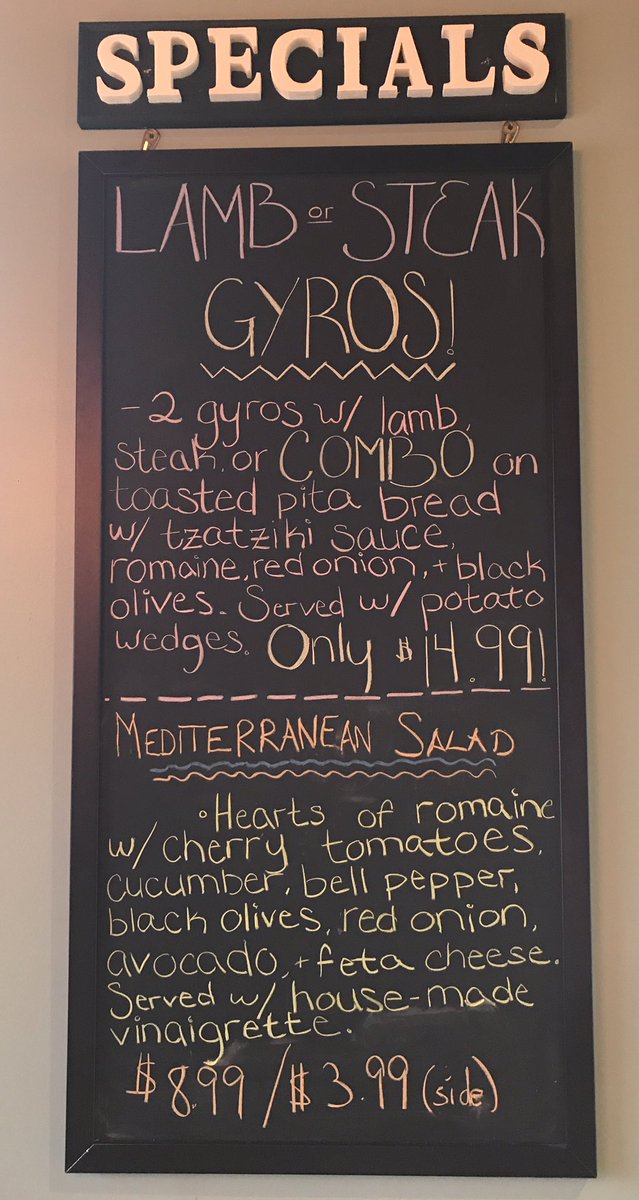 SPECIALS
LAMB or STEAK
GYROS!
- 2 gyros w/ lamb,
steak, or COMBO on
toasted pita bread
w/ tzatziki sauce,
romaine, red onion, + black
olives. Served w/ potato
wedges. Only $14.99!
MEDITERRANEAN SALAD
•Hearts of romaine
w/ cherry tomatoes,
cucumber, bell pepper,
black olives, red onion,
avocado, + feta cheese.
Served w/ house-made
vinaigrette.
$8.99 / $3.99 (side)